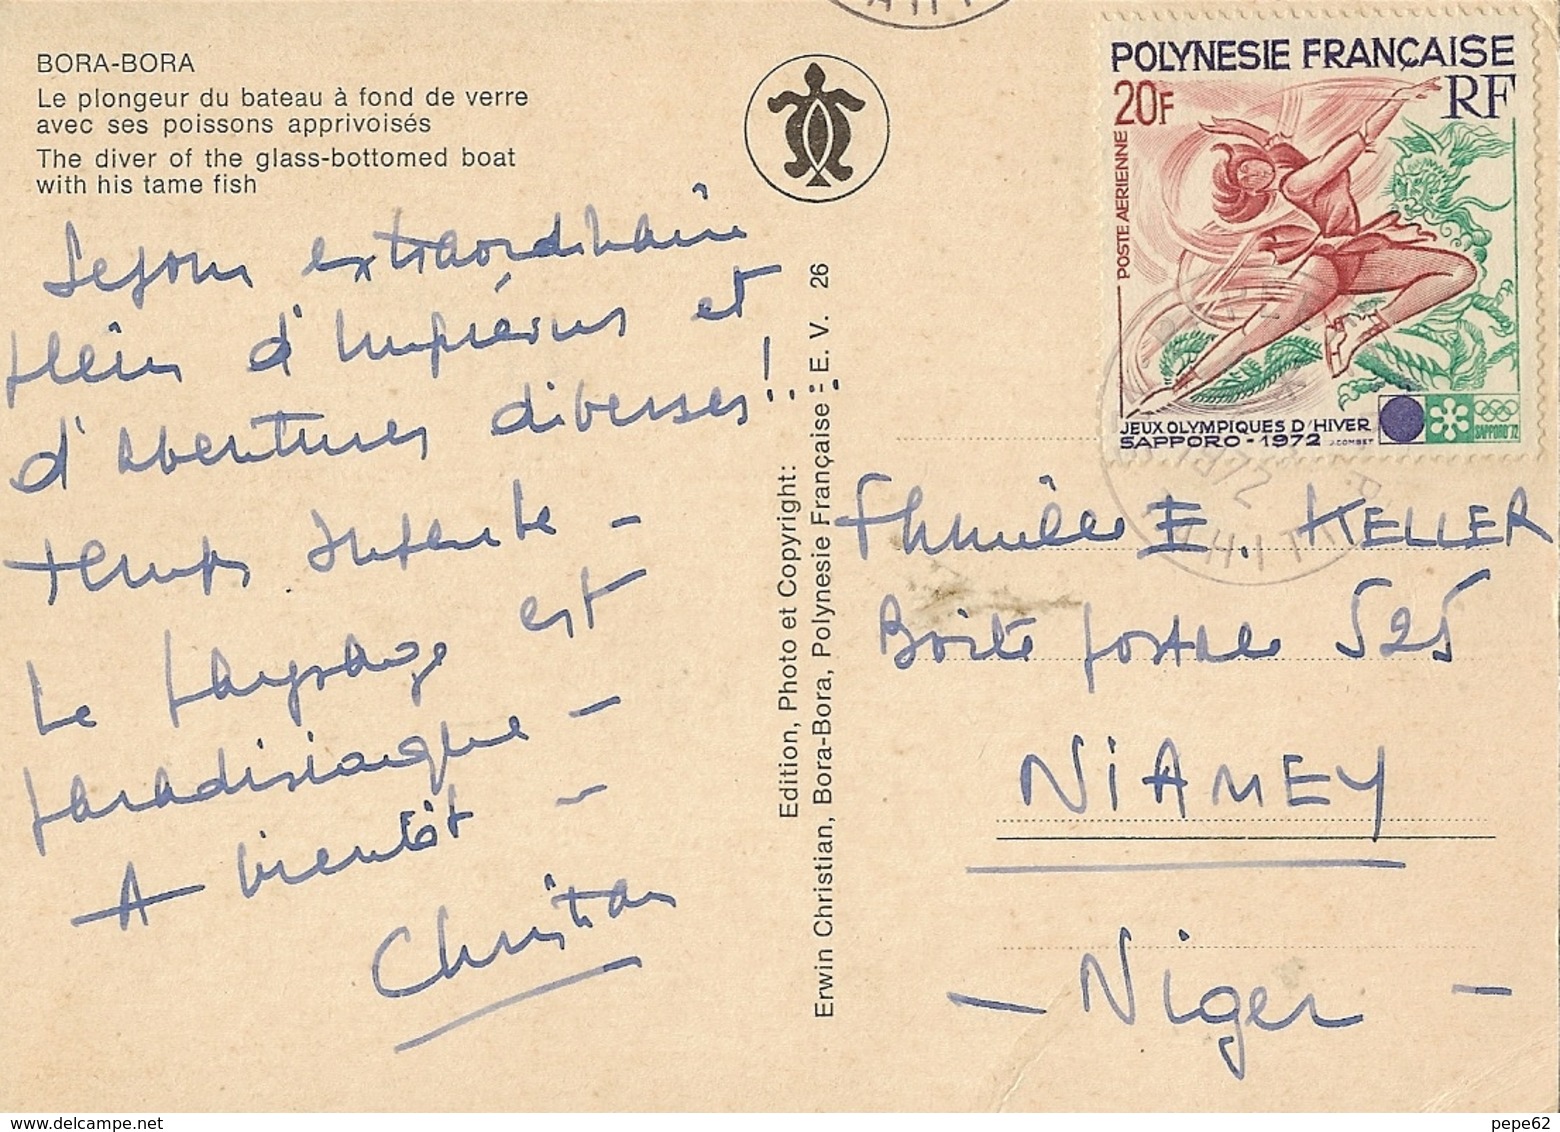 BORA-BORA
Le plongeur du bateau à fond de verre
avec ses poissons apprivoisés
The diver of the glass-bottomed boat
with his tame fish
Sejour extraordinaire
plein d'imprévus et
d'aventures diverses!...
temps superbe -
Le paysage est
paradisiaque -
A bientôt -
Christian
Edition, Photo et Copyright:
Erwin Christian, Bora-Bora, Polynesie Française - E. V. 26
POLYNESIE FRANÇAISE
20F RF
POSTE AERIENNE
JEUX OLYMPIQUES D'HIVER
SAPPORO - 1972 J. COMBET
SAPPORO'72
Famille E. KELLER
Boite postale 525
NIAMEY
- Niger -
pepe62